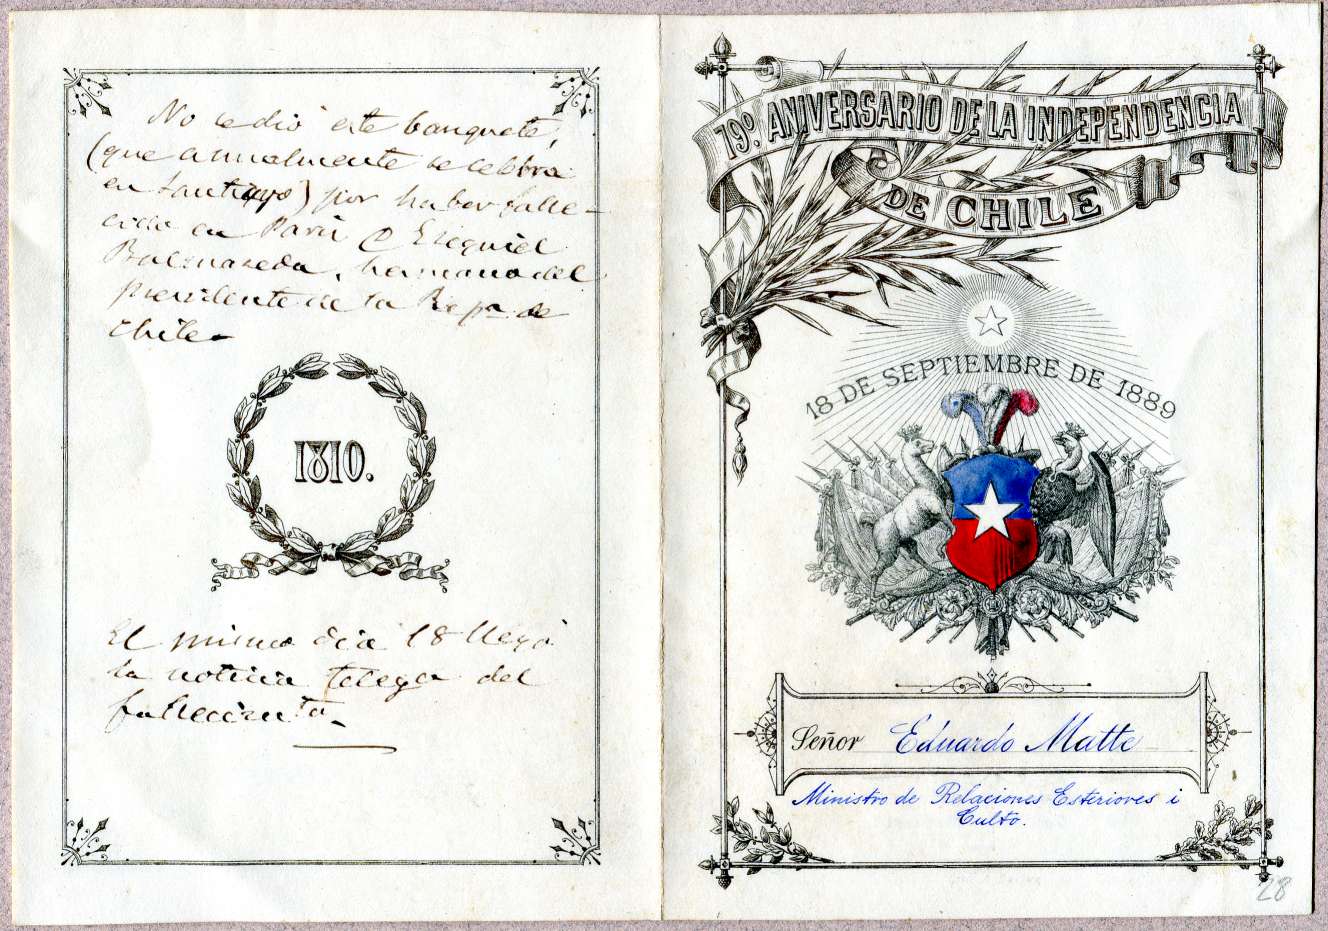 No se dió este banquete,
(que anualmente se celebra
en Santiago) por haber falle-
cido en Paris Dn Ezequiel
Balmaseda, hermano del
presidente de la Repa de
Chile-
1810.
El mismo dia 18 llegó
la noticia telega del
fallecimto-
79º. ANIVERSARIO DE LA INDEPENDENCIA
DE CHILE
18 DE SEPTIEMBRE DE 1889
Señor Eduardo Matte
Ministro de Relaciones Esteriores i
Culto.
28